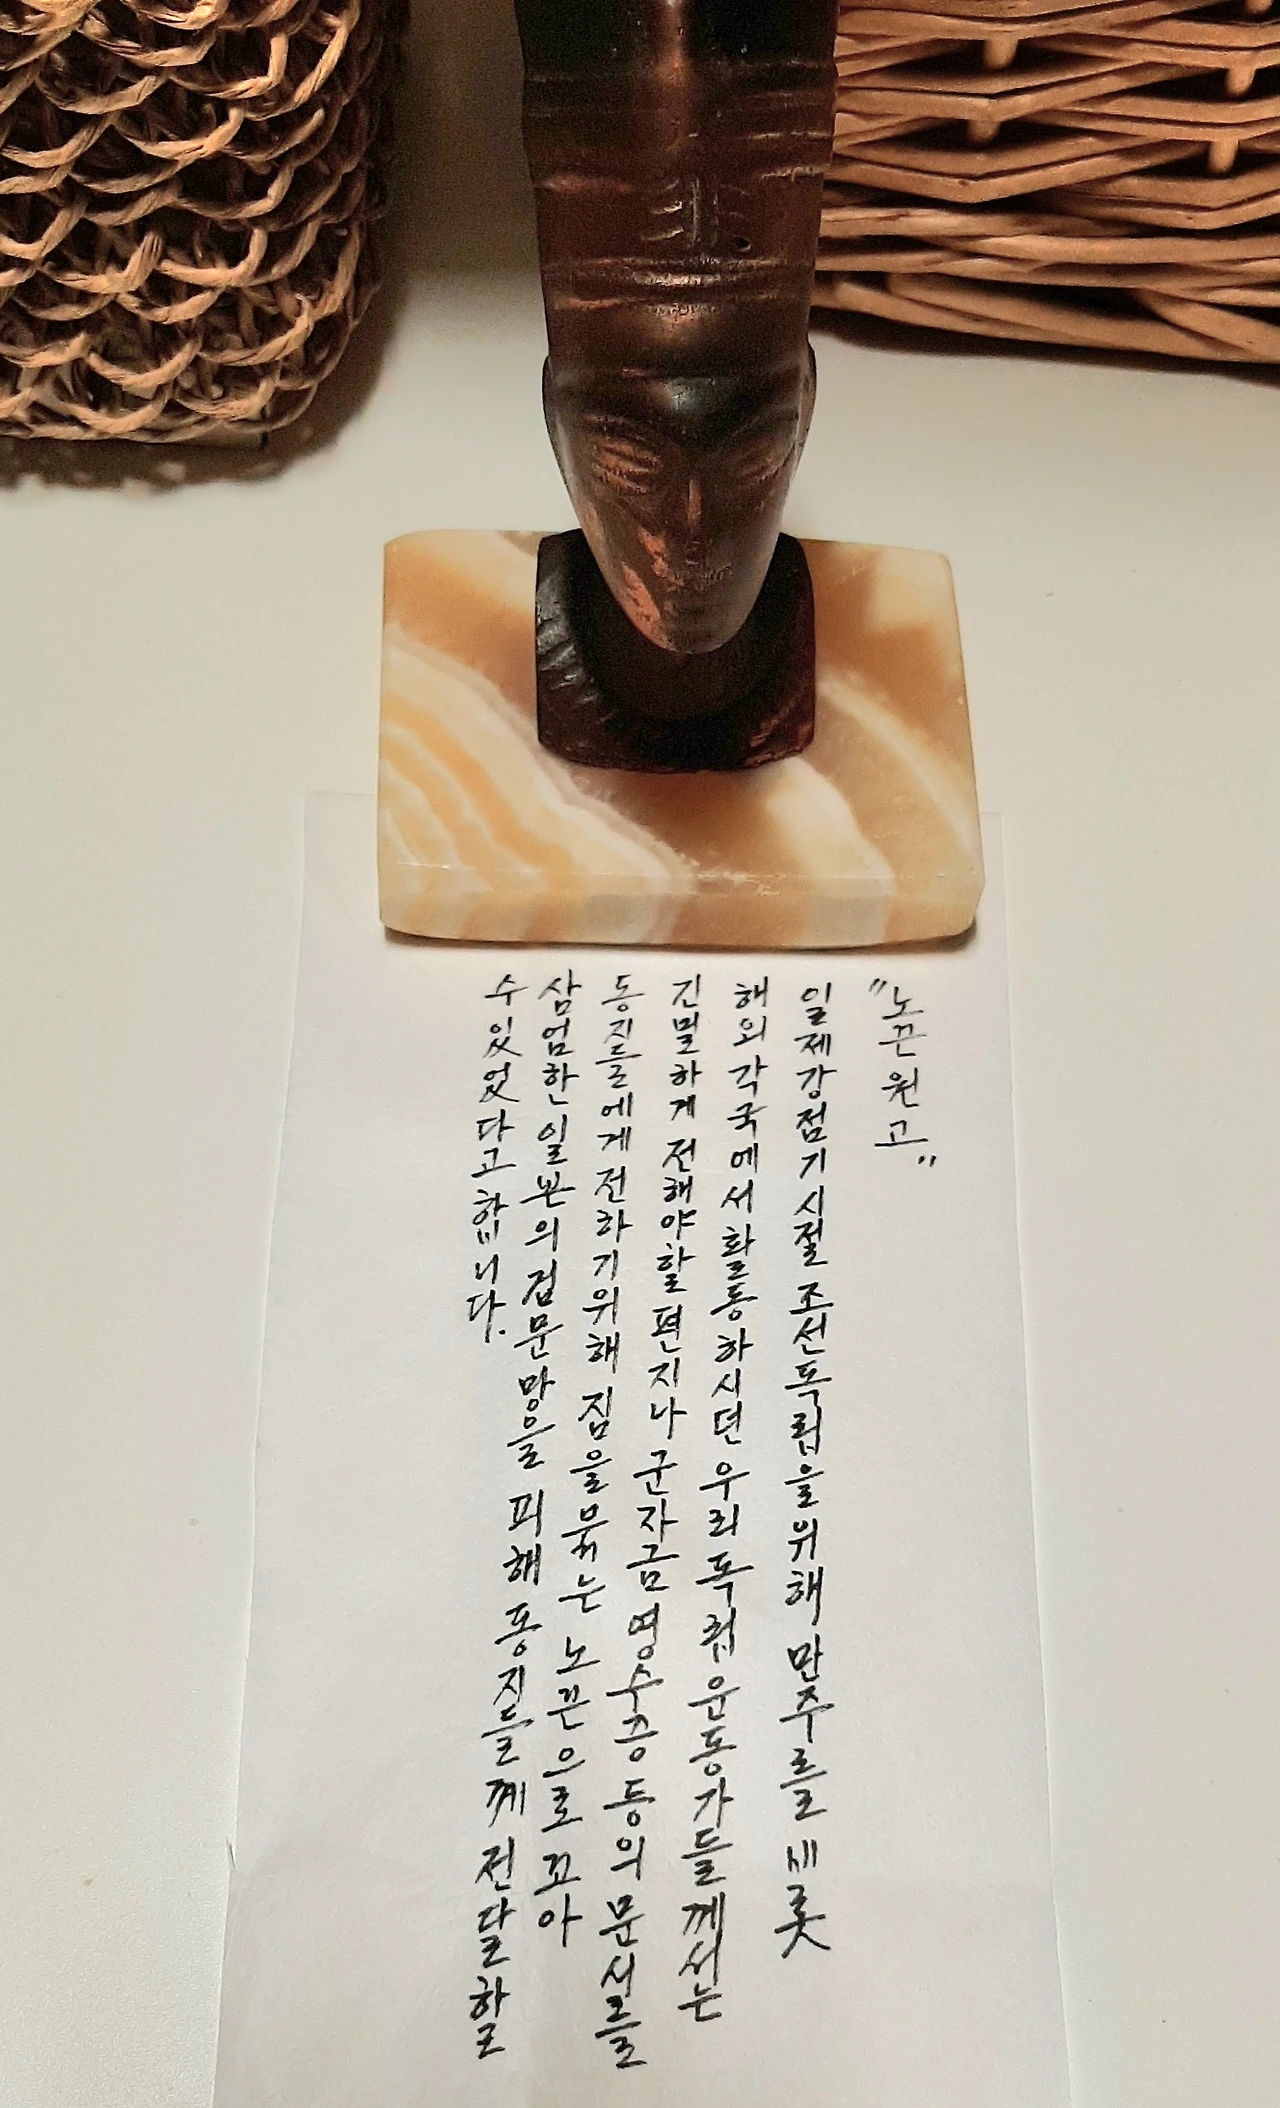 "노끈 원고"
일제강점기 시절 조선독립을 위해 만주를 비롯
해외 각국에서 활동하시던 우리 독립운동가들께서는
긴밀하게 전해야할 편지나 군자금 영수증 등의 문서를
동지들에게 전하기위해 집을 묶는 노끈으로 꼬아
삼엄한 일본의 검문망을 피해 동지들께 전달할
수 있었다고 합니다.